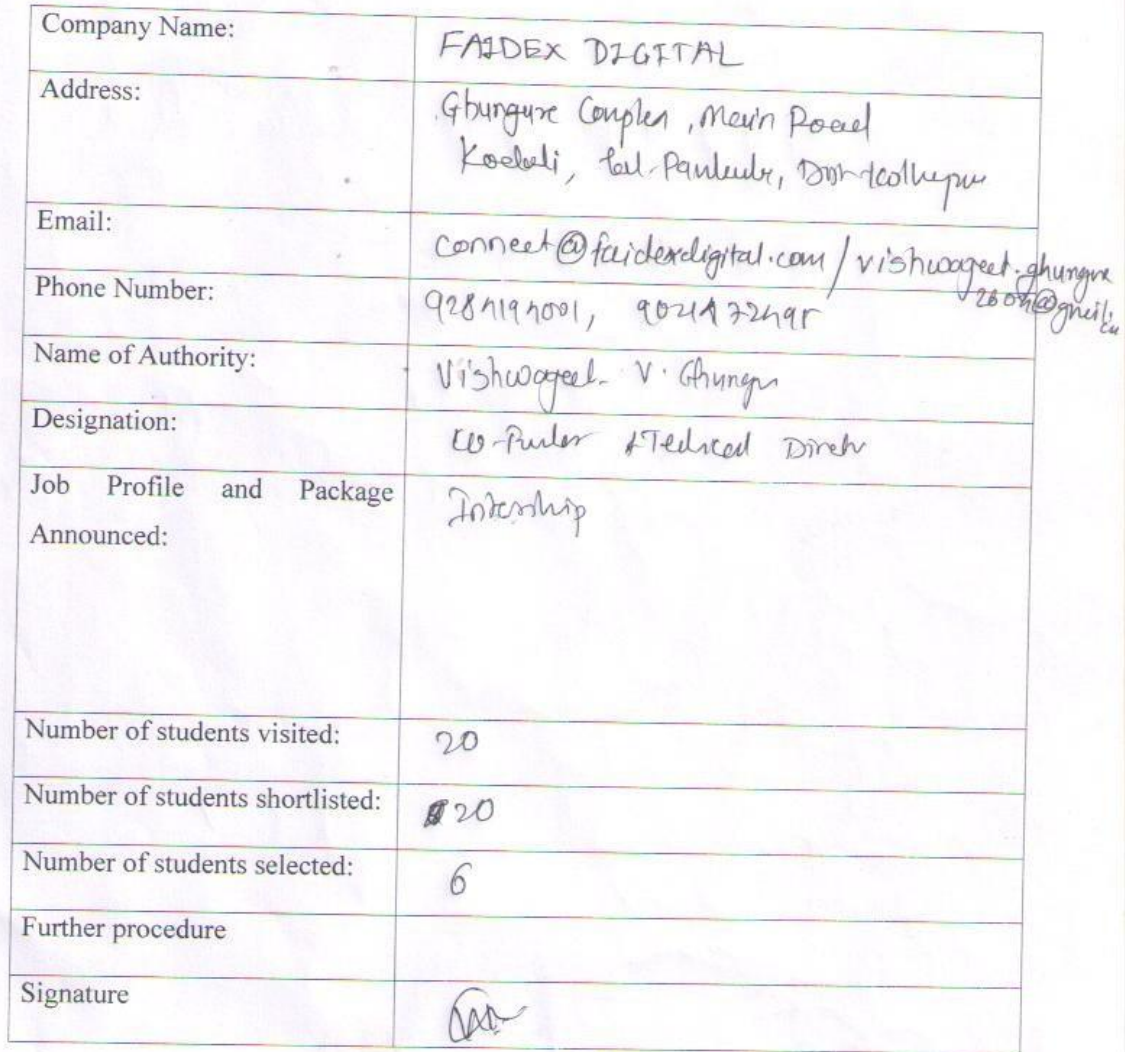 Company Name: FAIDEX DIGITAL
Address: Ghungure Complex, Main Road
Kodoli, Tal. Panhala, Dist-Kolhapur
Email: connect@faidexdigital.com / vishwageet.ghungure
@gmail.
Phone Number:
Name of Authority: Vishwageet V. Ghungure
Designation: Co-Founder & Technical Director
Job Profile and Package
Announced: Internship
Number of students visited: 20
Number of students shortlisted: 20
Number of students selected: 6
Further procedure
Signature